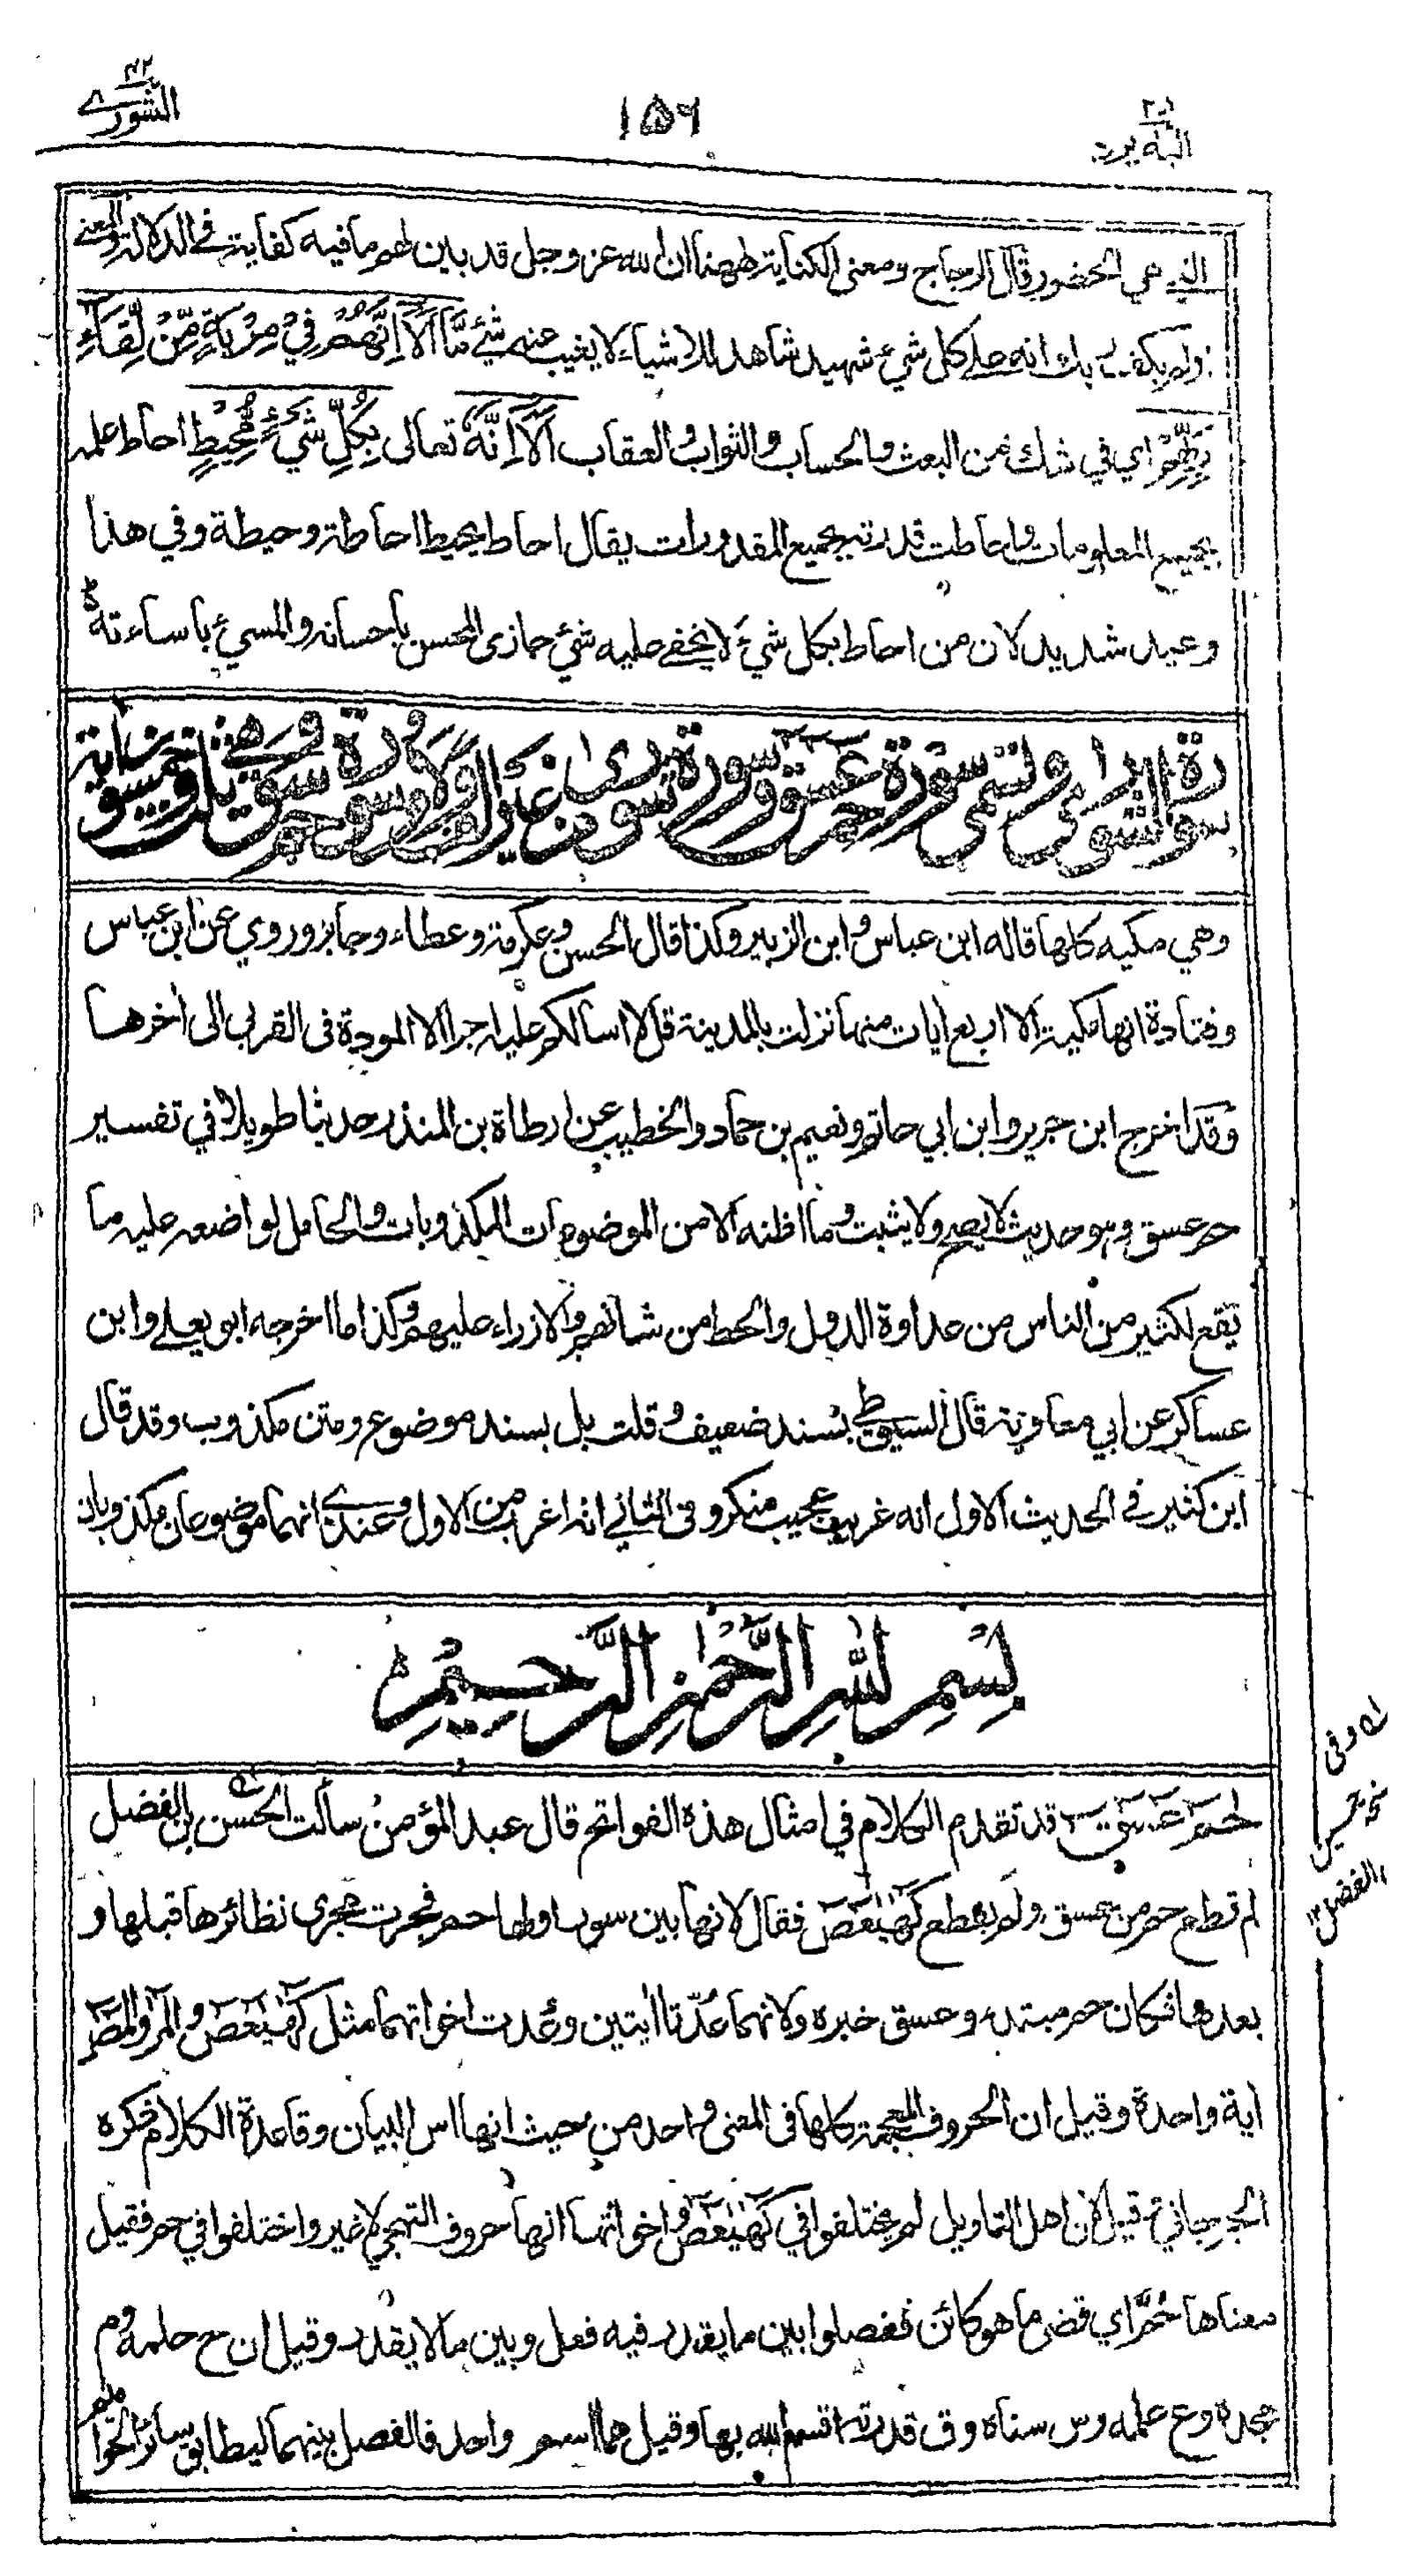 الشورى ٤٢
١٥٦
اليه يرد ٢٥
الذي هي الحضور قال الزجاج ومعنى الكناية ههنا ان الله عز وجل قد بين لهم ما فيه كفاية في الدلالة والمعنى
اولم يكف بربك انه على كل شيء شهيد شاهد للاشياء لا يغيب عنه شئ ما اَلَآ اِنَّهُمْ فِيْ مِرْيَةٍ مِّنْ لِّقَآءِ
رَبِّهِمْ اي في شك من البعث والحساب والثواب والعقاب اَلَآ اِنَّهٗ تعالى بِكُلِّ شَيْءٍ مُّحِيْطٌ احاط علمه
بجميع المعلومات واحاطت قدرته بجميع المقدورات يقال احاط يحيط احاطة وحيطة وفي هذا
وعيد شديد لان من احاط بكل شيء لا يخفى عليه شئ جازى المحسن باحسانه والمسيء باساءته
سورة الشورى وتسمى سورة حم عسق وسورة شورى من غير الف ولام وسورة حم سق وهي ثلث وخمسون اية
وهي مكيه كلها قاله ابن عباس وابن الزبير وكذا قال الحسن وعكرمة وعطاء وجابر وروي عن ابن عباس
وقتادة انها مكية الا اربع ايات منها نزلت بالمدينة قل لا اسالكم عليه اجرا الا المودة فى القربى الى اخرها
وقد اخرج ابن جرير وابن ابي حاتم ونعيم بن حماد والخطيب عن ارطاة بن المنذر حديثا طويلا في تفسير
حم عسق وهو حديث لا يصح ولا يثبت وما اظنه الا من الموضوعات المكذوبات والحامل لواضعه عليه ما
يقع لكثير من الناس من عداوة الدول والحط من شانهم والازراء عليهم وكذا ما اخرجه ابو يعلى وابن
عساكر عن ابي معاوية قال السيوطي بسند ضعيف وقلت بل بسند موضوع ومتن مكذوب وقد قال
ابن كثير في الحديث الاول انه غريب عجيب منكر وفى الثاني انه اغرب من الاول وعندي انهما موضوعان مكذوبان
بِسْمِ اللهِ الرَّحْمٰنِ الرَّحِيْمِ
حٰمٓ عٓسٓقٓ قد تقدم الكلام في امثال هذه الفواتح قال عبد المؤمن سألت الحسن بن الفضل
لم قطع حم من عسق ولم يقطع كهيعص فقال لانها بين سور اولها حم فجرت مجرى نظائرها قبلها و
بعدها فكان حم مبتدء وعسق خبره ولانهما عُدّتا ايتين وعُدت اخواتهما مثل كهيعص والمر والمص
اية واحدة وقيل ان الحروف المعجمة كلها فى المعنى واحد من حيث انها اس البيان وقاعدة الكلام ذكره
الجرجاني وقيل لان اهل التاويل لم يختلفوا في كهيعص واخواتها انها حروف التهجي لا غير واختلفوا في حم فقيل
معناها حُمَّ اي قضى ما هو كائن ففصلوا بين ما يقدر فيه فعل وبين ما لا يقدر وقيل ان ح حلمه وم
مجده وع علمه وس سناه وق قدرته اقسم الله بها وقيل هما اسم واحد فالفصل بينهما ليطابق سائر الحواميم
له وفى
نسخة حسين
بن الفضل ١٢